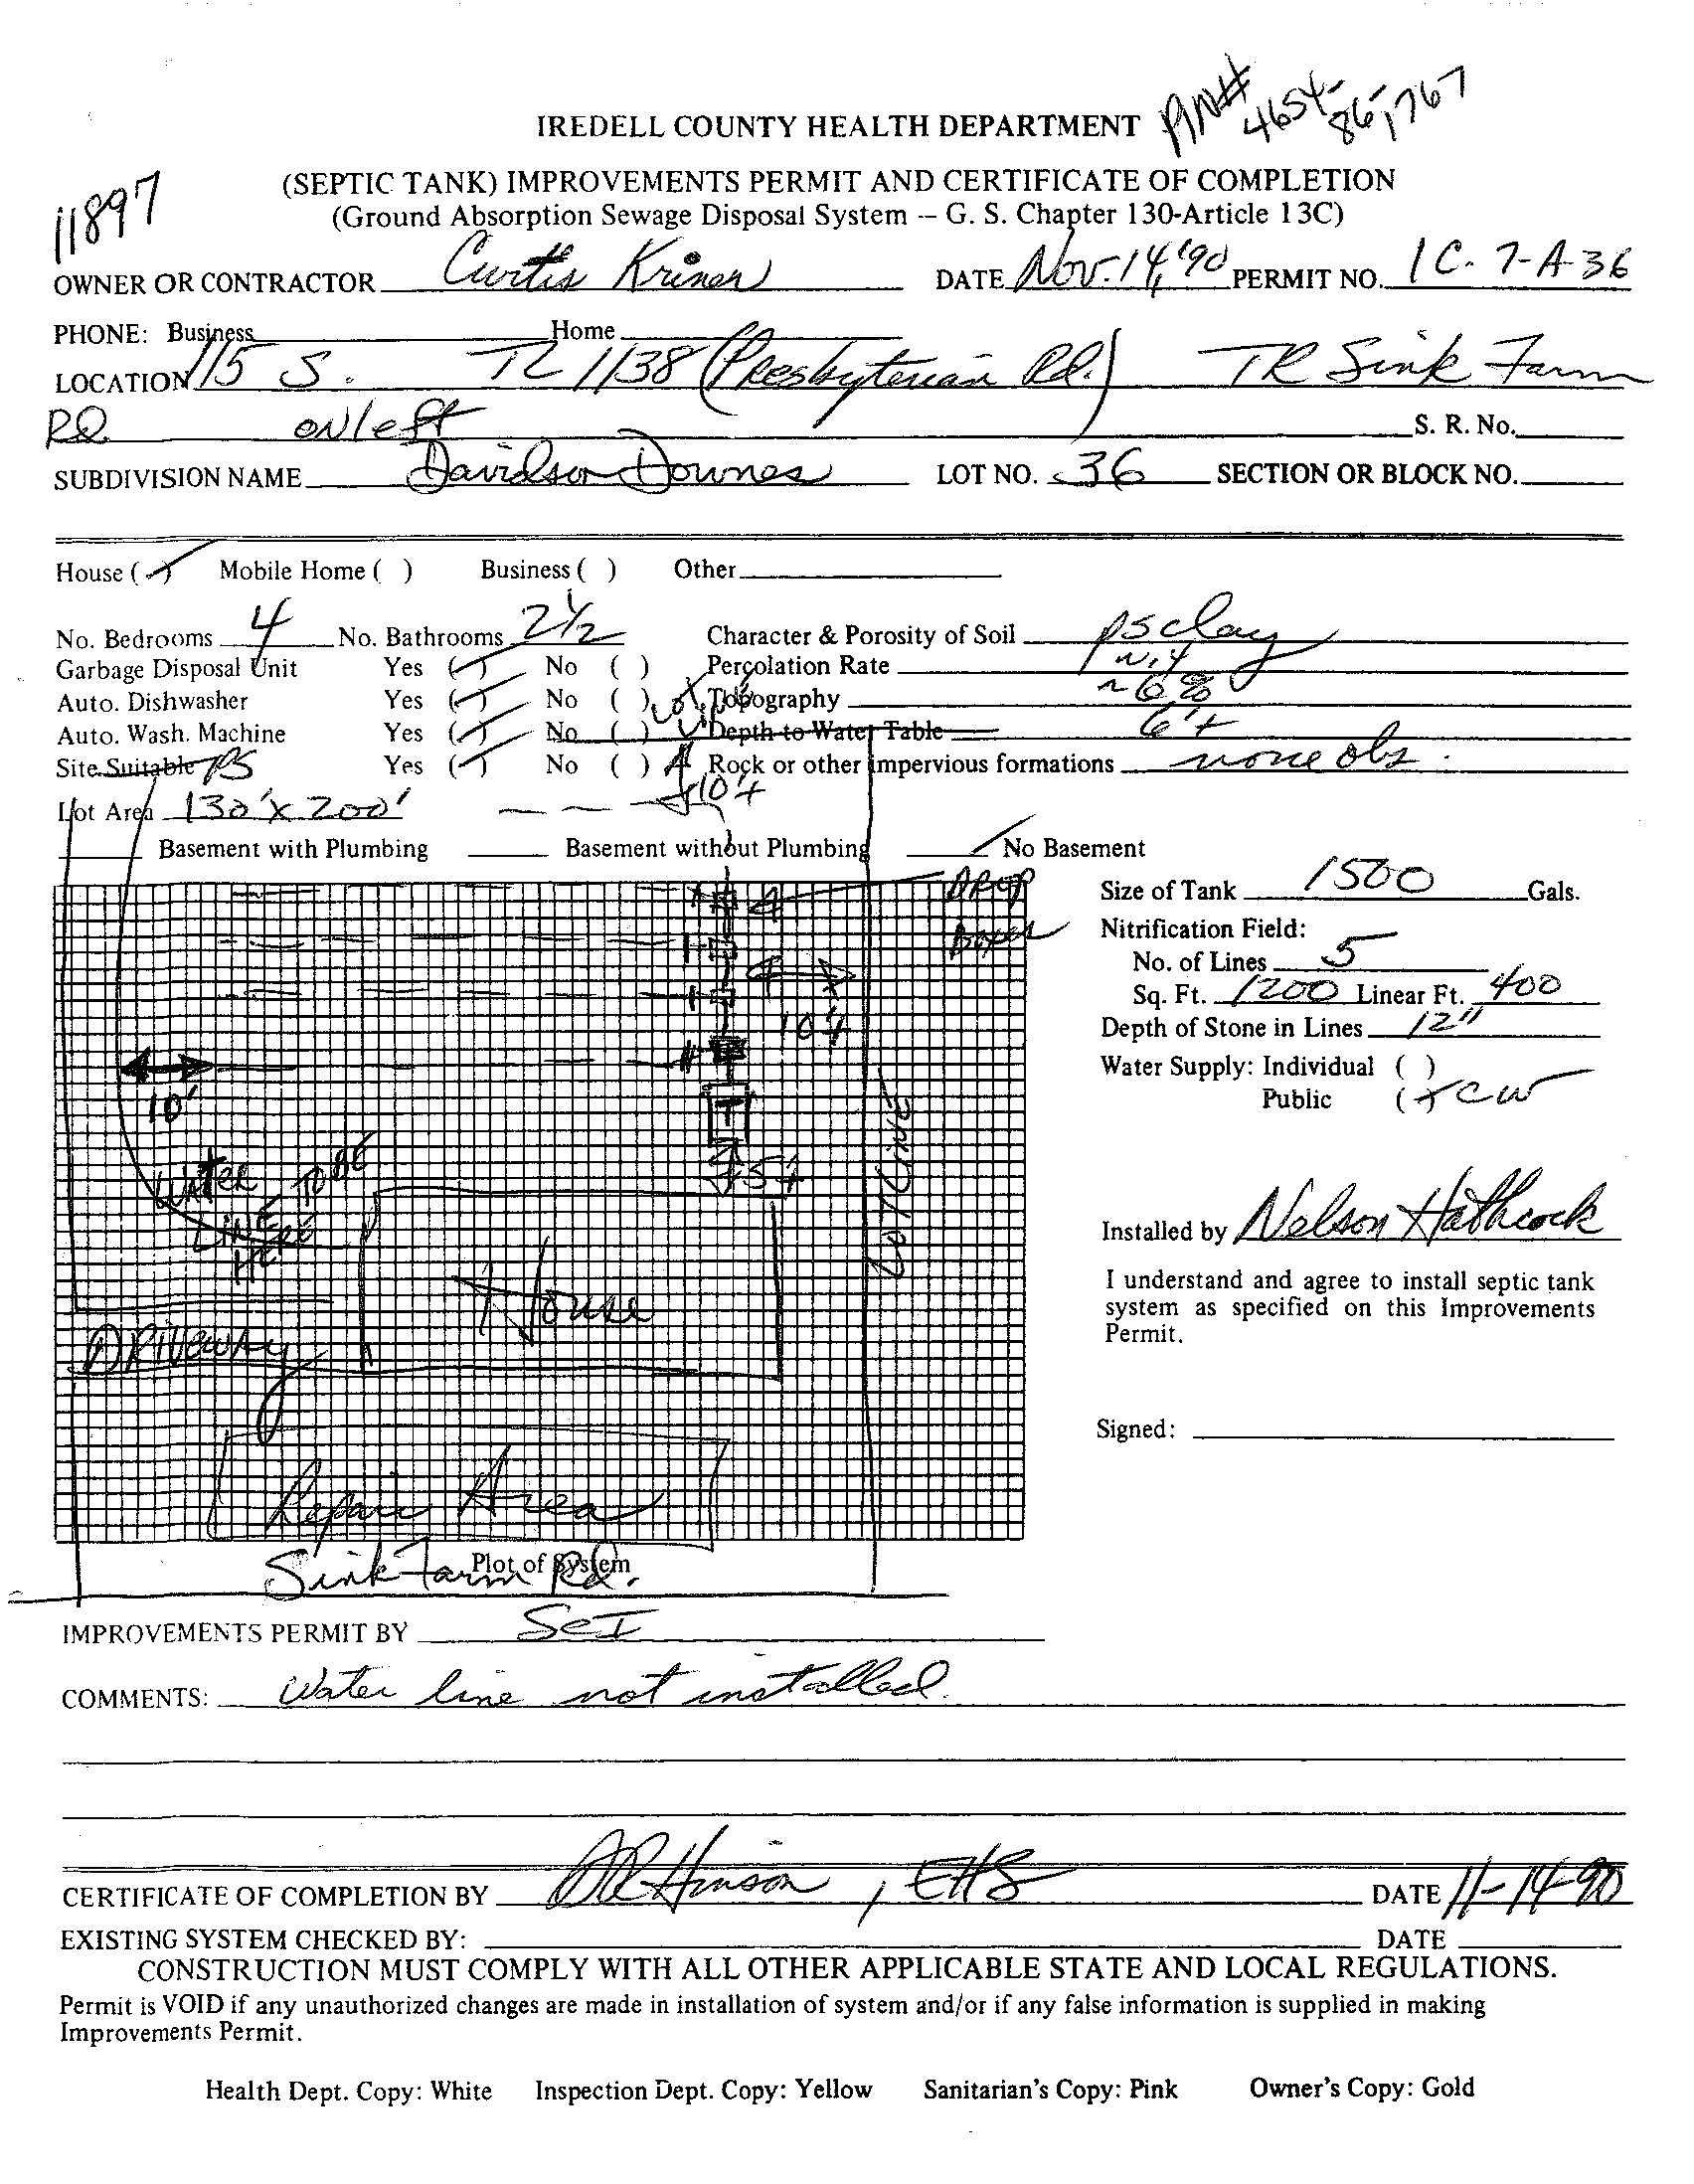 PIN# 4654-86-1767
IREDELL COUNTY HEALTH DEPARTMENT
11897
(SEPTIC TANK) IMPROVEMENTS PERMIT AND CERTIFICATE OF COMPLETION
(Ground Absorption Sewage Disposal System -- G. S. Chapter 130-Article 13C)
OWNER OR CONTRACTOR Curtis Kriner DATE Nov. 14, '90 PERMIT NO. 1C-7-A-36
PHONE: Business Home
LOCATION 115 S. TL 1138 (Presbyterian Rd.) TR Sink Farm
Rd on left S. R. No.
SUBDIVISION NAME Davidson Downes LOT NO. 36 SECTION OR BLOCK NO.
House ( ) Mobile Home ( ) Business ( ) Other
No. Bedrooms 4 No. Bathrooms 2 1/2 Character & Porosity of Soil PS clay
Garbage Disposal Unit Yes ( ) No ( ) Percolation Rate
Auto. Dishwasher Yes ( ) No ( ) Topography ~6%
Auto. Wash. Machine Yes ( ) No ( ) Depth to Water Table 6'+
Site Suitable PS Yes ( ) No ( ) Rock or other impervious formations none obs.
Lot Area 130' x 200' 10'+
Basement with Plumbing Basement without Plumbing No Basement
DROP
Boxes
Size of Tank 1500 Gals.
Nitrification Field:
No. of Lines 5
Sq. Ft. 1200 Linear Ft. 400
Depth of Stone in Lines 12"
Water Supply: Individual ( )
Public ( ) CW
10'+
10'
T
5'+
WATER
LINE TO BE
HERE
LOT LINE
House
DRIVEWAY
Repair Area
Installed by Nelson Hathcock
I understand and agree to install septic tank
system as specified on this Improvements
Permit.
Signed:
Plot of System
Sink Farm Rd.
IMPROVEMENTS PERMIT BY
COMMENTS: Water line not installed.
CERTIFICATE OF COMPLETION BY DR Hinson, EHS DATE 11-14-90
EXISTING SYSTEM CHECKED BY: DATE
CONSTRUCTION MUST COMPLY WITH ALL OTHER APPLICABLE STATE AND LOCAL REGULATIONS.
Permit is VOID if any unauthorized changes are made in installation of system and/or if any false information is supplied in making
Improvements Permit.
Health Dept. Copy: White Inspection Dept. Copy: Yellow Sanitarian's Copy: Pink Owner's Copy: Gold